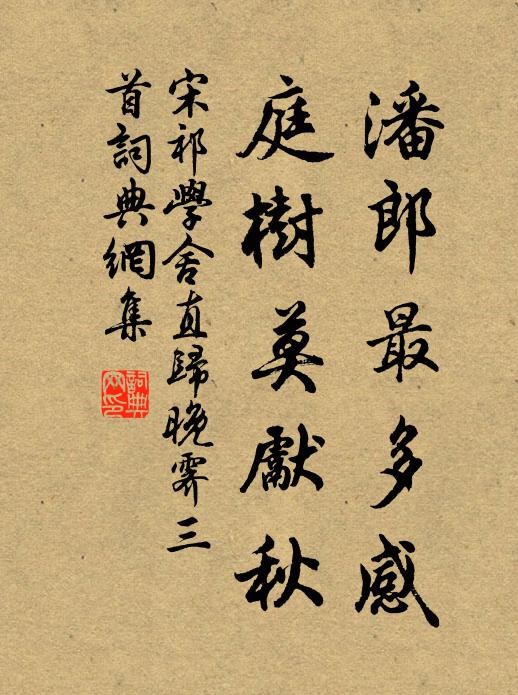 潘郎最多感
庭樹莫獻秋
宋祁學舍直歸晚霽三
首詞典網集
詞典網印